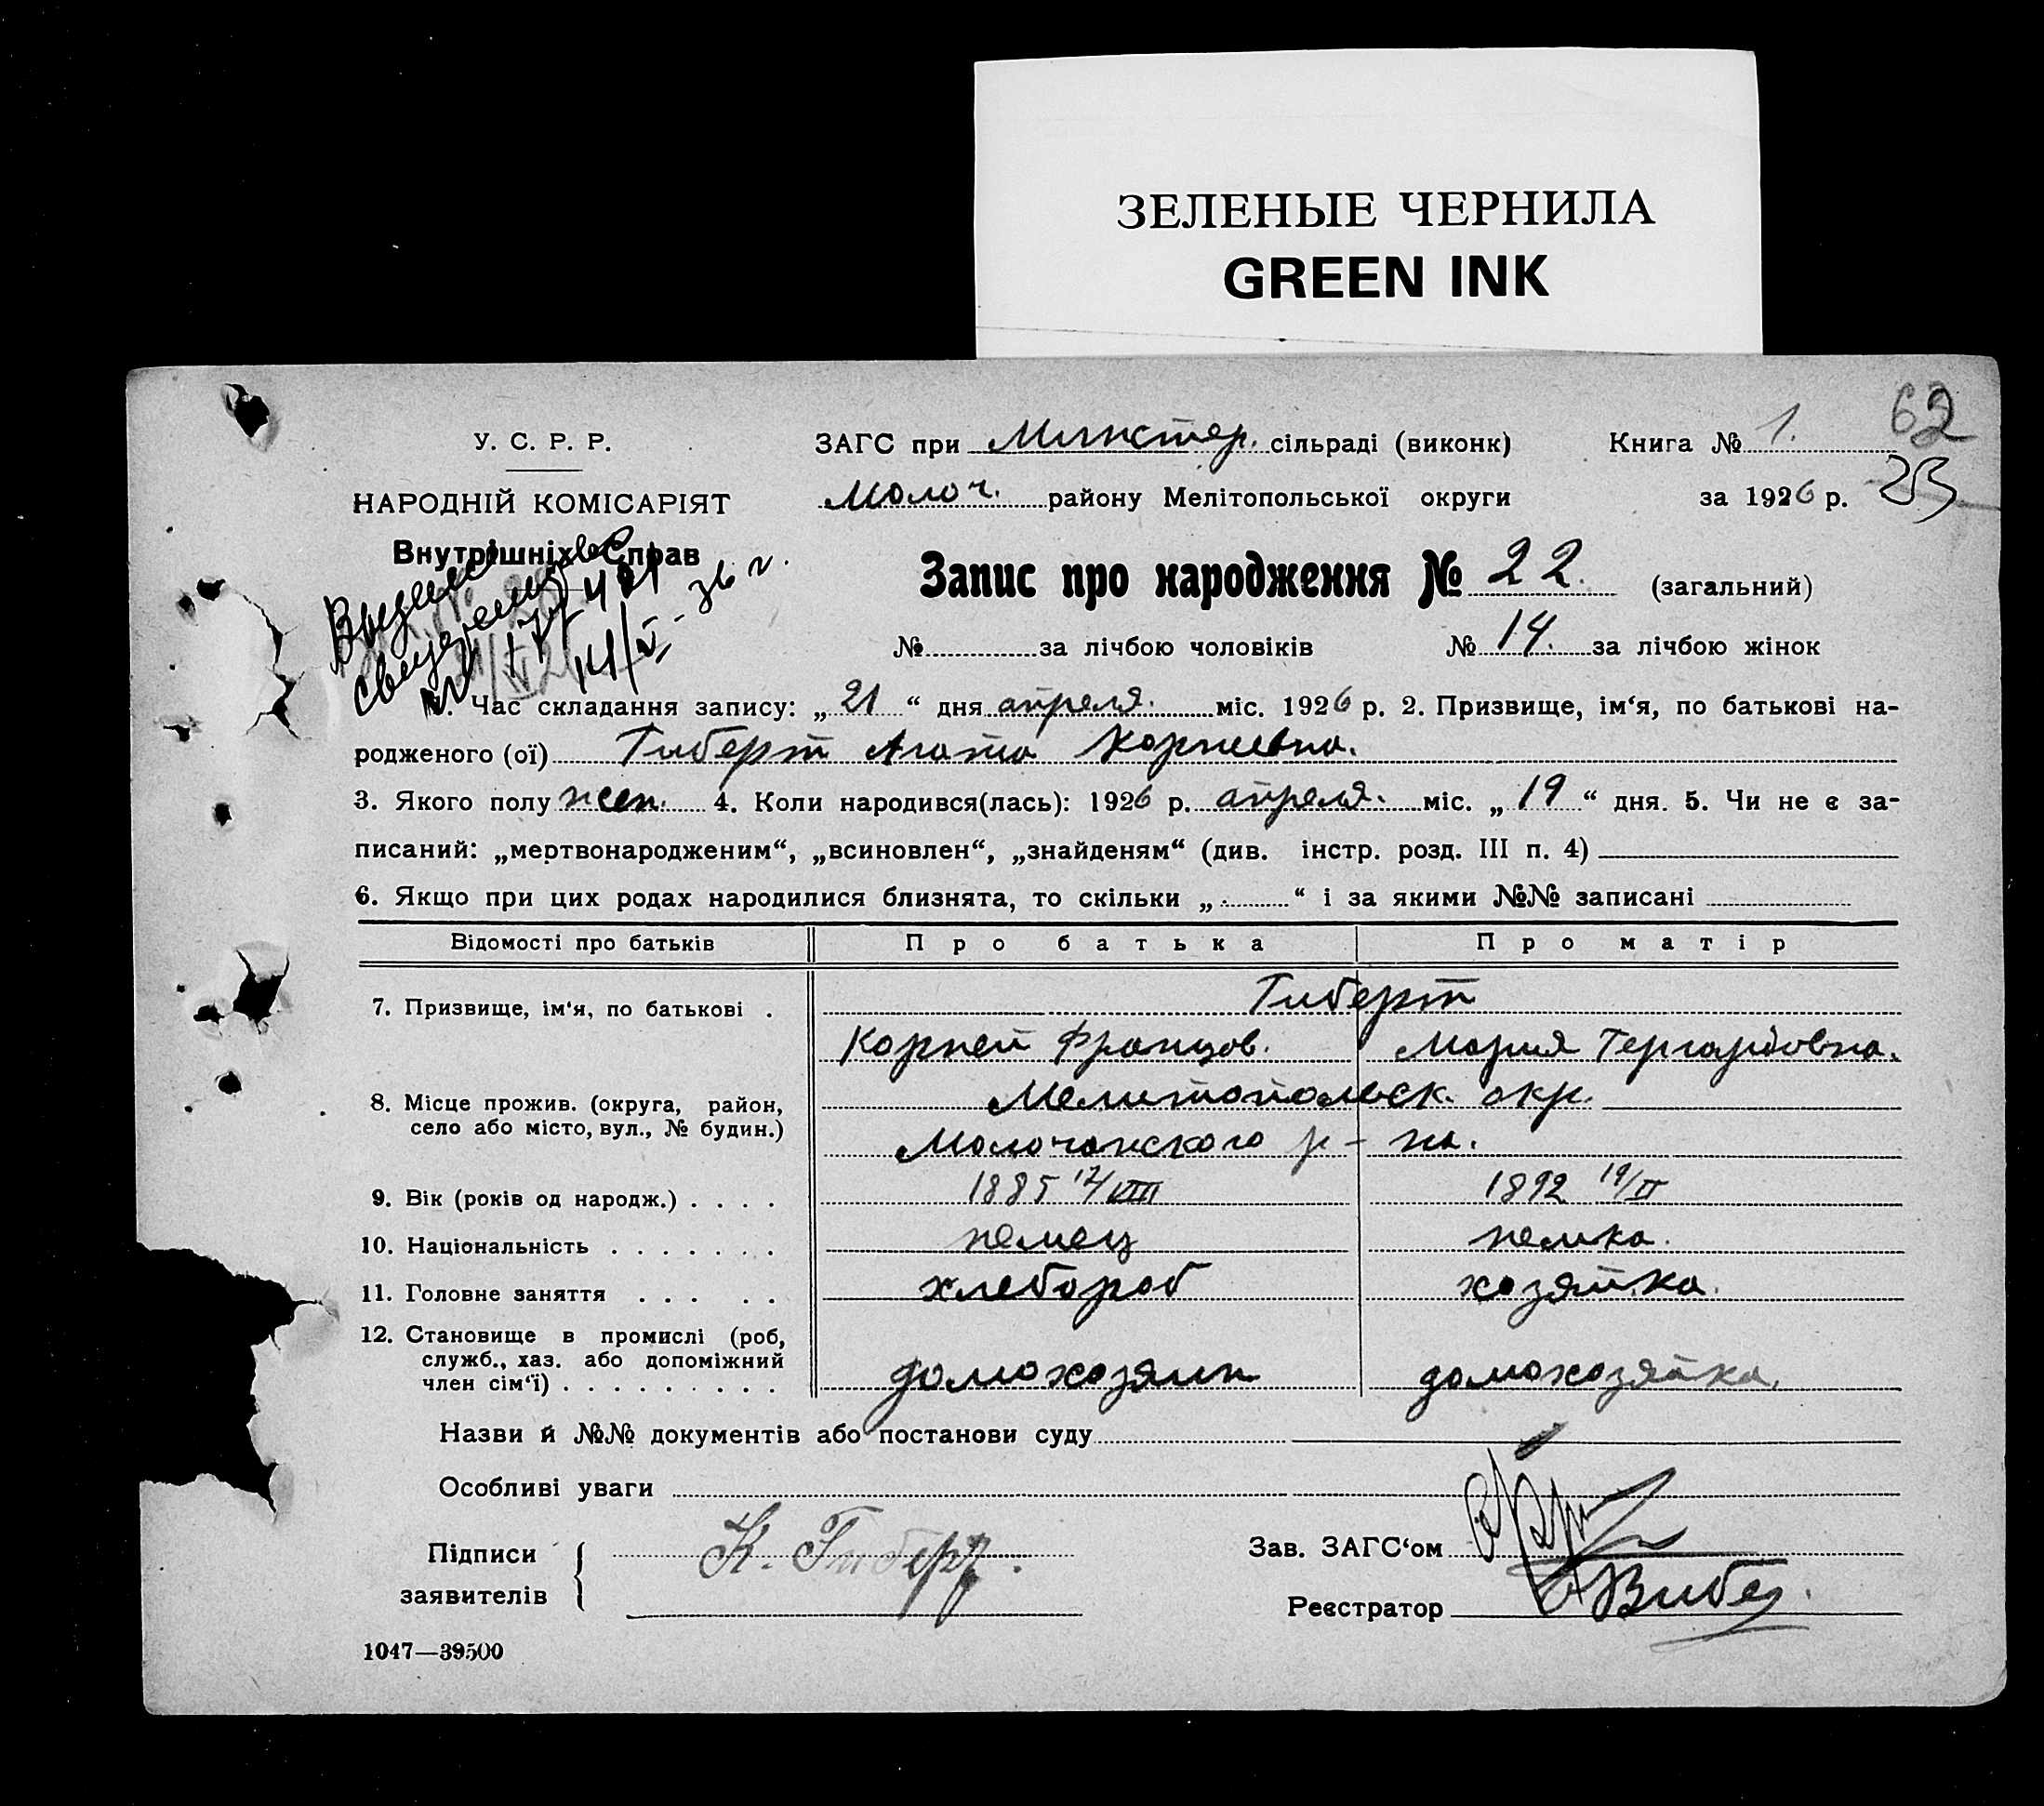 ЗЕЛЕНЫЕ ЧЕРНИЛА
GREEN INK
62
У. С. Р. Р.
ЗАГС при Минстер. сільраді (виконк)
Книга № 1.
НАРОДНІЙ КОМІСАРІЯТ
Молоч. району Мелітопольської округи
за 1926 р.
Внутрішніх Справ
Запис про народження № 22. (загальний)
№ за лічбою чоловіків № 14. за лічбою жінок
1. Час складання запису: „ 21 “ дня апреля. міс. 1926 р. 2. Призвище, ім‘я, по батькові на-
родженого (ої) Гиберт Агата Корнеевна.
3. Якого полу жен. 4. Коли народився(лась): 1926 р. апреля. міс. „ 19 “ дня. 5. Чи не є за-
писаний: „мертвонародженим“, „всиновлен“, „знайденям“ (див. інстр. розд. III п. 4)
6. Якщо при цих родах народилися близнята, то скільки „ “ і за якими №№ записані
Відомості про батьків Про батька Про матір
7. Призвище, ім‘я, по батькові . Гиберт
Корней Францов. Мария Гергардовна.
8. Місце прожив. (округа, район, Мелитопольск. окр.
село або місто, вул., № будин.) Молочанского р-на.
9. Вік (років од народж.) . . . . 1885 17/VIII 1892 19/II
10. Національність . . . . . . . немец немка.
11. Головне заняття . . . . . хлебороб хозяйка.
12. Становище в промислі (роб,
служб., хаз. або допоміжний
член сім‘ї) . . . . . . . . . домохозяин домохозяйка.
Назви й №№ документів або постанови суду
Особливі уваги
Підписи К. Гиберт. Зав. ЗАГС‘ом
заявителів Реєстратор Вибе
1047—39500